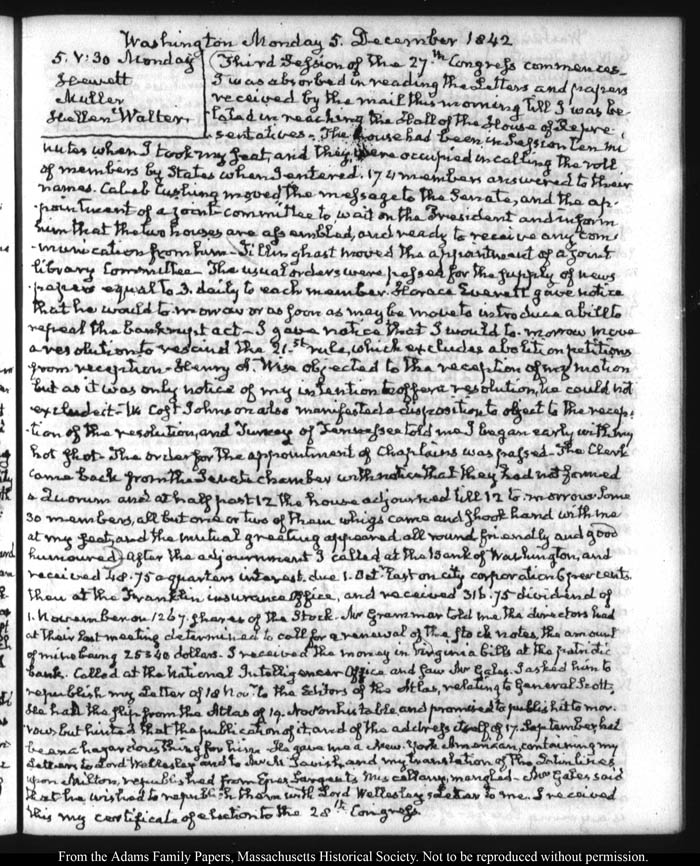 Washington Monday 5. December 1842
5. V:30 Monday
Hewett
Muller
Hellen Walter.
Third Session of the 27th Congress commences.
I was absorbed in reading the Letters and papers
received by the mail this morning till I was be-
lated in reaching the Hall of the House of Repre-
sentatives. The house had been in Session ten mi
nutes when I took my seat, and they were occupied in calling the roll
of members by States when I entered. 174 members answered to their
names. Caleb Cushing moved the message to the Senate, and the ap-
pointment of a joint-committee to wait on the President and inform
him that the two houses are assembled, and ready to receive any com-
munication from him. Tillinghast moved the appointment of a joint
library Committee. The usual orders were passed for the supply of news
papers equal to 3. daily to each member. Horace Everett gave notice
that he would to-morrow or as soon as may be move to introduce a bill to
repeal the bankrupt act. I gave notice that I would to-morrow move
a resolution to rescind the 21st rule, which excludes abolition petitions
from reception. Henry A. Wise objected to the reception of my motion
but as it was only notice of my intention to offer a resolution, he could not
exclude it. W. Cost Johnson also manifested a disposition to object to the recep-
tion of the resolution, and Turney of Tennessee told me I began early with my
hot shot. The order for the appointment of Chaplains was passed. The Clerk
came back from the Senate chamber with notice that they had not formed
a Quorum and at half past 12 the house adjourned till 12 to-morrow. Some
30 members, all but one or two of them whigs came and shook hand with me
at my seat, and the mutual greeting appeared all round friendly and good
humoured. After the adjournment I called at the Bank of Washington, and
received 48.75 a quarters interest. due 1. Octr last on city corporation 6 per cents.
then at the Franklin insurance Office, and received 316.75 dividend of
1. November on 1267. shares of the Stock. Mr Grammar told me the directors had
at their last meeting determined to call for a renewal of the stock notes, the amount
of mine being 25340 dollars. I received the money in Virginia bills at the patriotic
bank. Called at the National Intelligencer Office and saw Mr Gales. I asked him to
republish my Letter of 18 Novr to the Editors of the Atlas, relating to General Scott.
He had the slip from the Atlas of 19. Novr on his table and promised to publish it to-mor-
row, but hinted that the publication of it, and of the address itself of 17. September, had
been a hazardous thing for him. He gave me a New-York American, containing my
Letters to Lord Wellesley and to Mr M'Tavish, and my translation of the Latin lines
upon Milton, republished from Epes Sargent's Miscellany, mangled. Mr Gales said
that he wished to republish them with Lord Wellesley's Letter to me. I received
this my certificate of election to the 28th Congress.
From the Adams Family Papers, Massachusetts Historical Society. Not to be reproduced without permission.